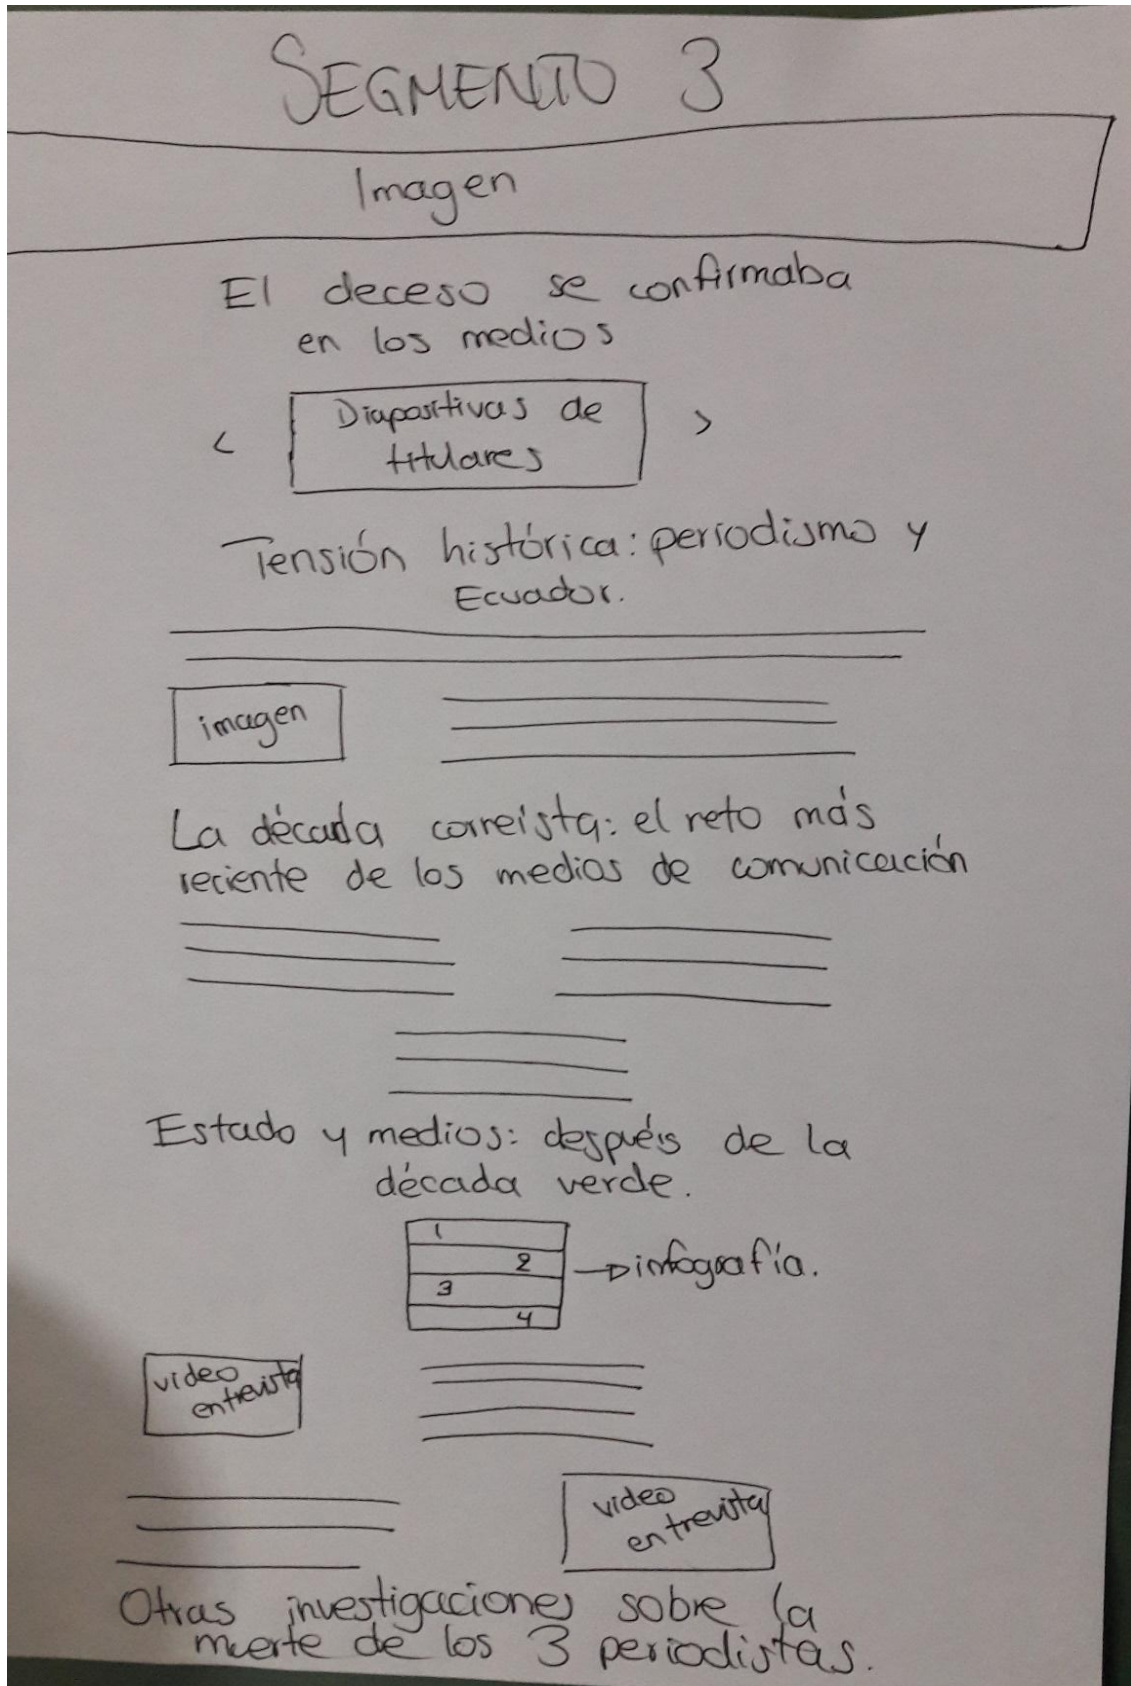 SEGMENTO 3
Imagen
El deceso se confirmaba
en los medios
< Diapositivas de >
titulares
Tensión histórica: periodismo y
Ecuador.
imagen
La década correísta: el reto más
reciente de los medios de comunicación
Estado y medios: después de la
década verde.
1
2
3
4
infografía.
video
entrevista
video
entrevista
Otras investigaciones sobre la
muerte de los 3 periodistas.